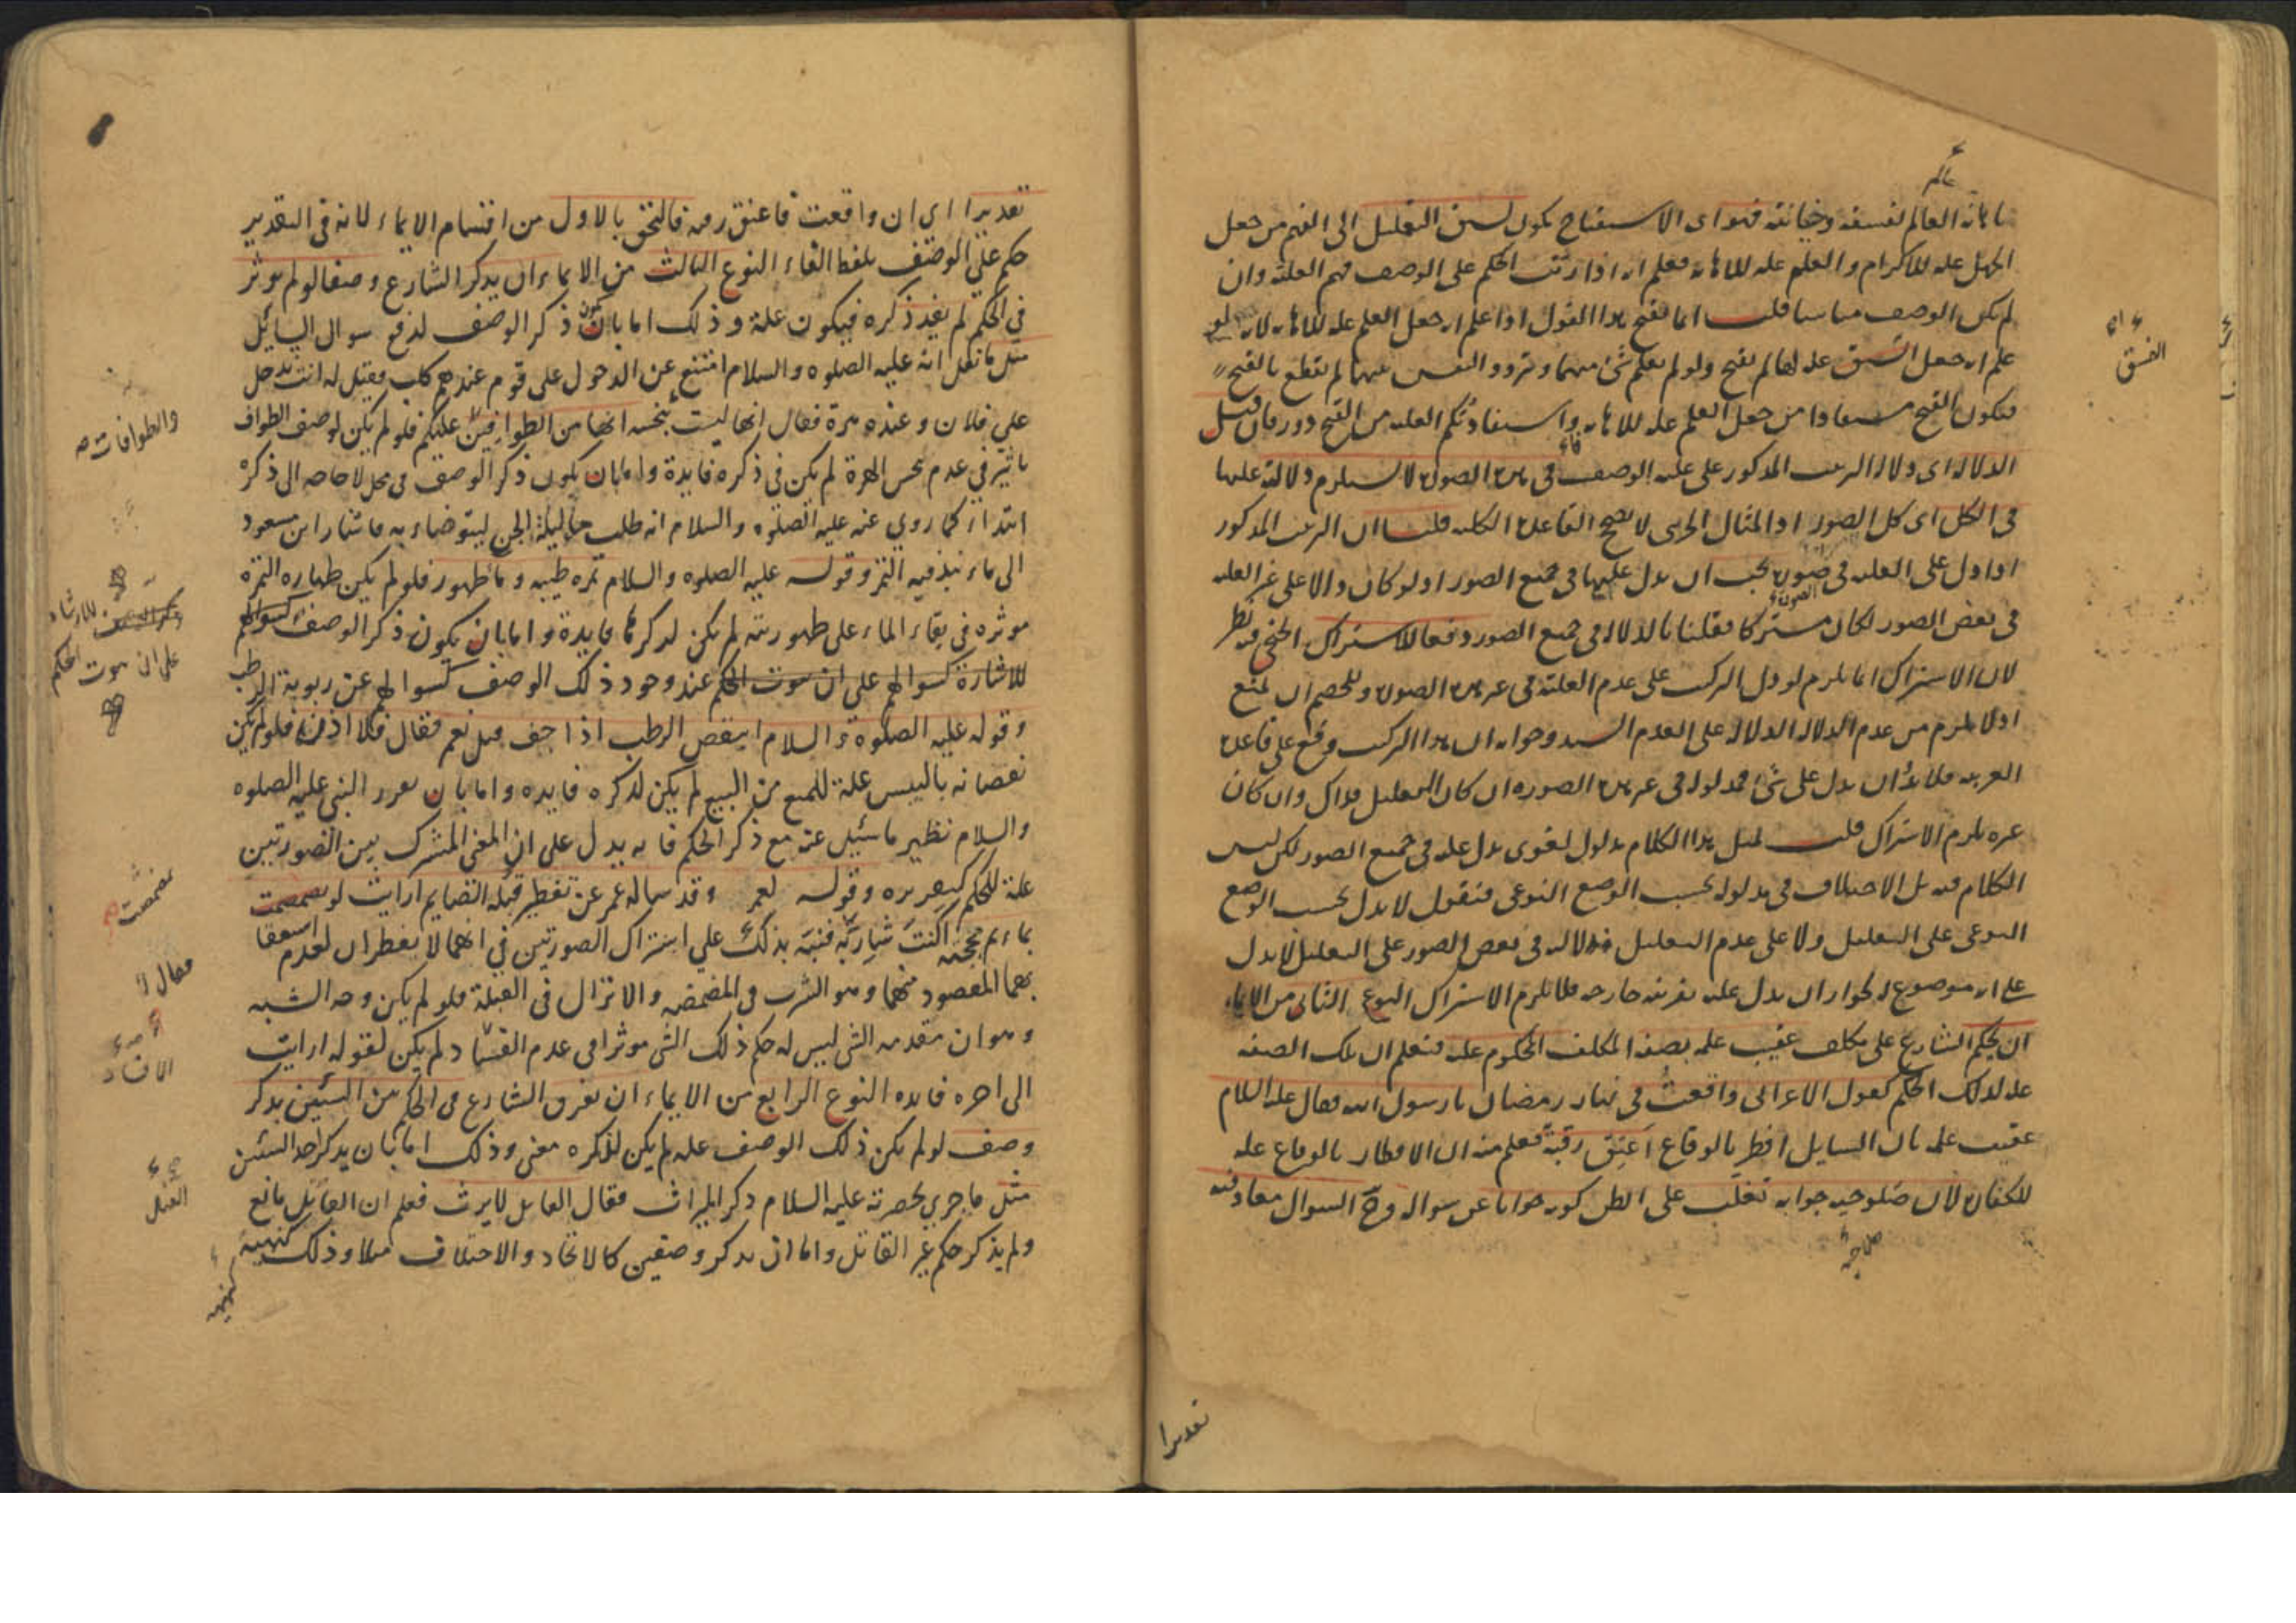 باهانه العالم لفسقه وخيانته فهو اى الاستقباح يكون لسبق التعليل الى الفهم من جعل
الجهل عله للاكرام والعلم عله للاهانه فعلم انه اذا رتب الحكم على الوصف فهم العلته وان
لم يكن الوصف مناسبا قلت انما يقبح هذا القول اذا علم انه جعل العلم عله للاهانه لانه لو
علم انه جعل الفسق عله لها لم يقبح ولو لم يعلم شئ منهما وتردد النفس بينهما لم يقطع بالقبح
فيكون القبح مستفادا من جعل العلم عله للاهانه واستفادتكم العله من القبح دور فان قيل
الدلاله اى دلاله الترتيب المذكور على عليه الوصف فى هذه الصوره لا يستلزم دلالته عليها
فى الكل اى كل الصور اذ المثال الجزيى لا يصحح القاعده الكليه قلنا ان الترتيب المذكور
اذا دل على العليه فى صوره يجب ان يدل عليها فى جميع الصور اذ لو كان دالا على غير العليه
فى بعض الصور لكان مشتركا فقلنا بالدلاله فى جميع الصور دفعا للاشتراك الخ فيه نظر
لان الاشتراك انما يلزم لو دل التركيب على عدم العليّة فى غير هذه الصوره وللخصم ان يمنع
اذ لا يلزم من عدم الدلاله الدلاله على العدم السيد وجوابه ان هذا التركيب وقع على قاعده
العربيه فلا بدّ ان يدل على شئ فمدلوله فى غير هذه الصوره ان كان التعليل فذاك وان كان
غيره يلزم الاشتراك قلت لمثل هذا الكلام مدلول لغوى يدل عليه فى جميع الصور لكن ليس
الكلام فيه بل الاختلاف فى مدلوله بحسب الوضع النوعى فنقول لا يدل بحسب الوضع
النوعى على التعليل ولا على عدم التعليل فدلالته فى بعض الصور على التعليل لا يدل
على انه موضوع له لجواز ان يدل عليه بقرينه خارجه فلا يلزم الاشتراك النوع الثانى من الايماء
ان يحكم الشارع على مكلف عقيب علمه بصفه المكلف المحكوم عليه فيعلم ان تلك الصفه
عله لذلك الحكم كقول الاعرابى واقعتُ فى نهار رمضان يا رسول الله فقال عليه السلام
عقيب علمه بان السايل افطر بالوقاع اَعتِق رقبةً فعلم منه ان الافطار بالوقاع عله
للكفاره لان صلوحيه جوابه تغلّب على الظن كونه جوابا عن سواله وحَ السوال معاد فيه
الفسق
صلاحيه
تقديرا
تقديرا اى ان واقعت فاعتق رقبه فالتحق بالاول من اقسام الايماء لانه فى التقدير
حكم على الوصف بلفظ الفاء النوع الثالث من الايماء ان يذكر الشارع وصفا لو لم يوثر
فى الحكم لم يفد ذكره فيكون علة وذلك اما بان يكون ذكر الوصف لدفع سوال السائل
مثل ما نقل انه عليه الصلوه والسلام امتنع عن الدخول على قوم عندهم كلب فقيل له انت تدخل
على فلان وعنده هرة فقال انها ليست بنجسه انها من الطوافين عليكم فلو لم يكن لوصف الطواف
تاثير فى عدم نجس الهرة لم يكن فى ذكره فايدة واما بان يكون ذكر الوصف فى محل لا حاجه الى ذكره
ابتداء كما روي عنه عليه الصلوه والسلام انه طلب ماء ليلة الجن ليتوضاء به فاشار ابن مسعود
الى ماء نبذ فيه التمر وقوله عليه الصلوه والسلام تمره طيبه وماء طهور فلو لم يكن طهاره التمرة
موثره فى بقاء الماء على طهوريته لم يكن لذكرها فايدة واما بان يكون ذكر الوصف كسوالهم
للاشارة كسوالهم على ان ثبوت الحكم عند وجود ذلك الوصف كسوالهم عن ربوية الرطب
وقوله عليه الصلوة والسلام اينقص الرطب اذا جف قيل نعم فقال فلا اذن فلو لم يكن
نقصانه باليبس علة للمنع من البيع لم يكن لذكره فايده واما بان يقرر النبى عليه الصلوه
والسلام نظير ما سئيل عنه مع ذكر الحكم فانه يدل على ان المعنى المشترك بين الصورتين
علة للحكم كتقريره وقوله لعمر وقد ساله عمر عن تفطير قبلة الصايم ارايت لو تمضمضت
بماء ثم مججته اكنتَ شاربَه فنبّه بذلك على اشتراك الصورتين فى انهما لا يفطران لعدم استعقا
بهما المقصود منهما وهو الشرب فى المضمضه والانزال فى القبلة فلو لم يكن وجه الشبه
وهو ان مقدمه الشى ليس له حكم ذلك الشى موثرا فى عدم الفساد لم يكن لقوله ارايت
الى اخره فايده النوع الرابع من الايماء ان يفرق الشارع فى الحكم من الشيئين بذكر
وصف لو لم يكن ذلك الوصف عله لم يكن لذكره معنى وذلك اما بان يذكر احد الشيئين
مثل ما جرى بحضرته عليه السلام ذكر الميراث فقال القاتل لا يرث فعلم ان القاتل مانع
ولم يذكر حكم غير القاتل واما ان يذكر وصفين كالاتحاد والاختلاف مثلا وذلك كنهيه
والطوافات
للارشاد
على ان ثبوت الحكم
تمضمضت
فقال لا
الافساد
القتل
كنهيه